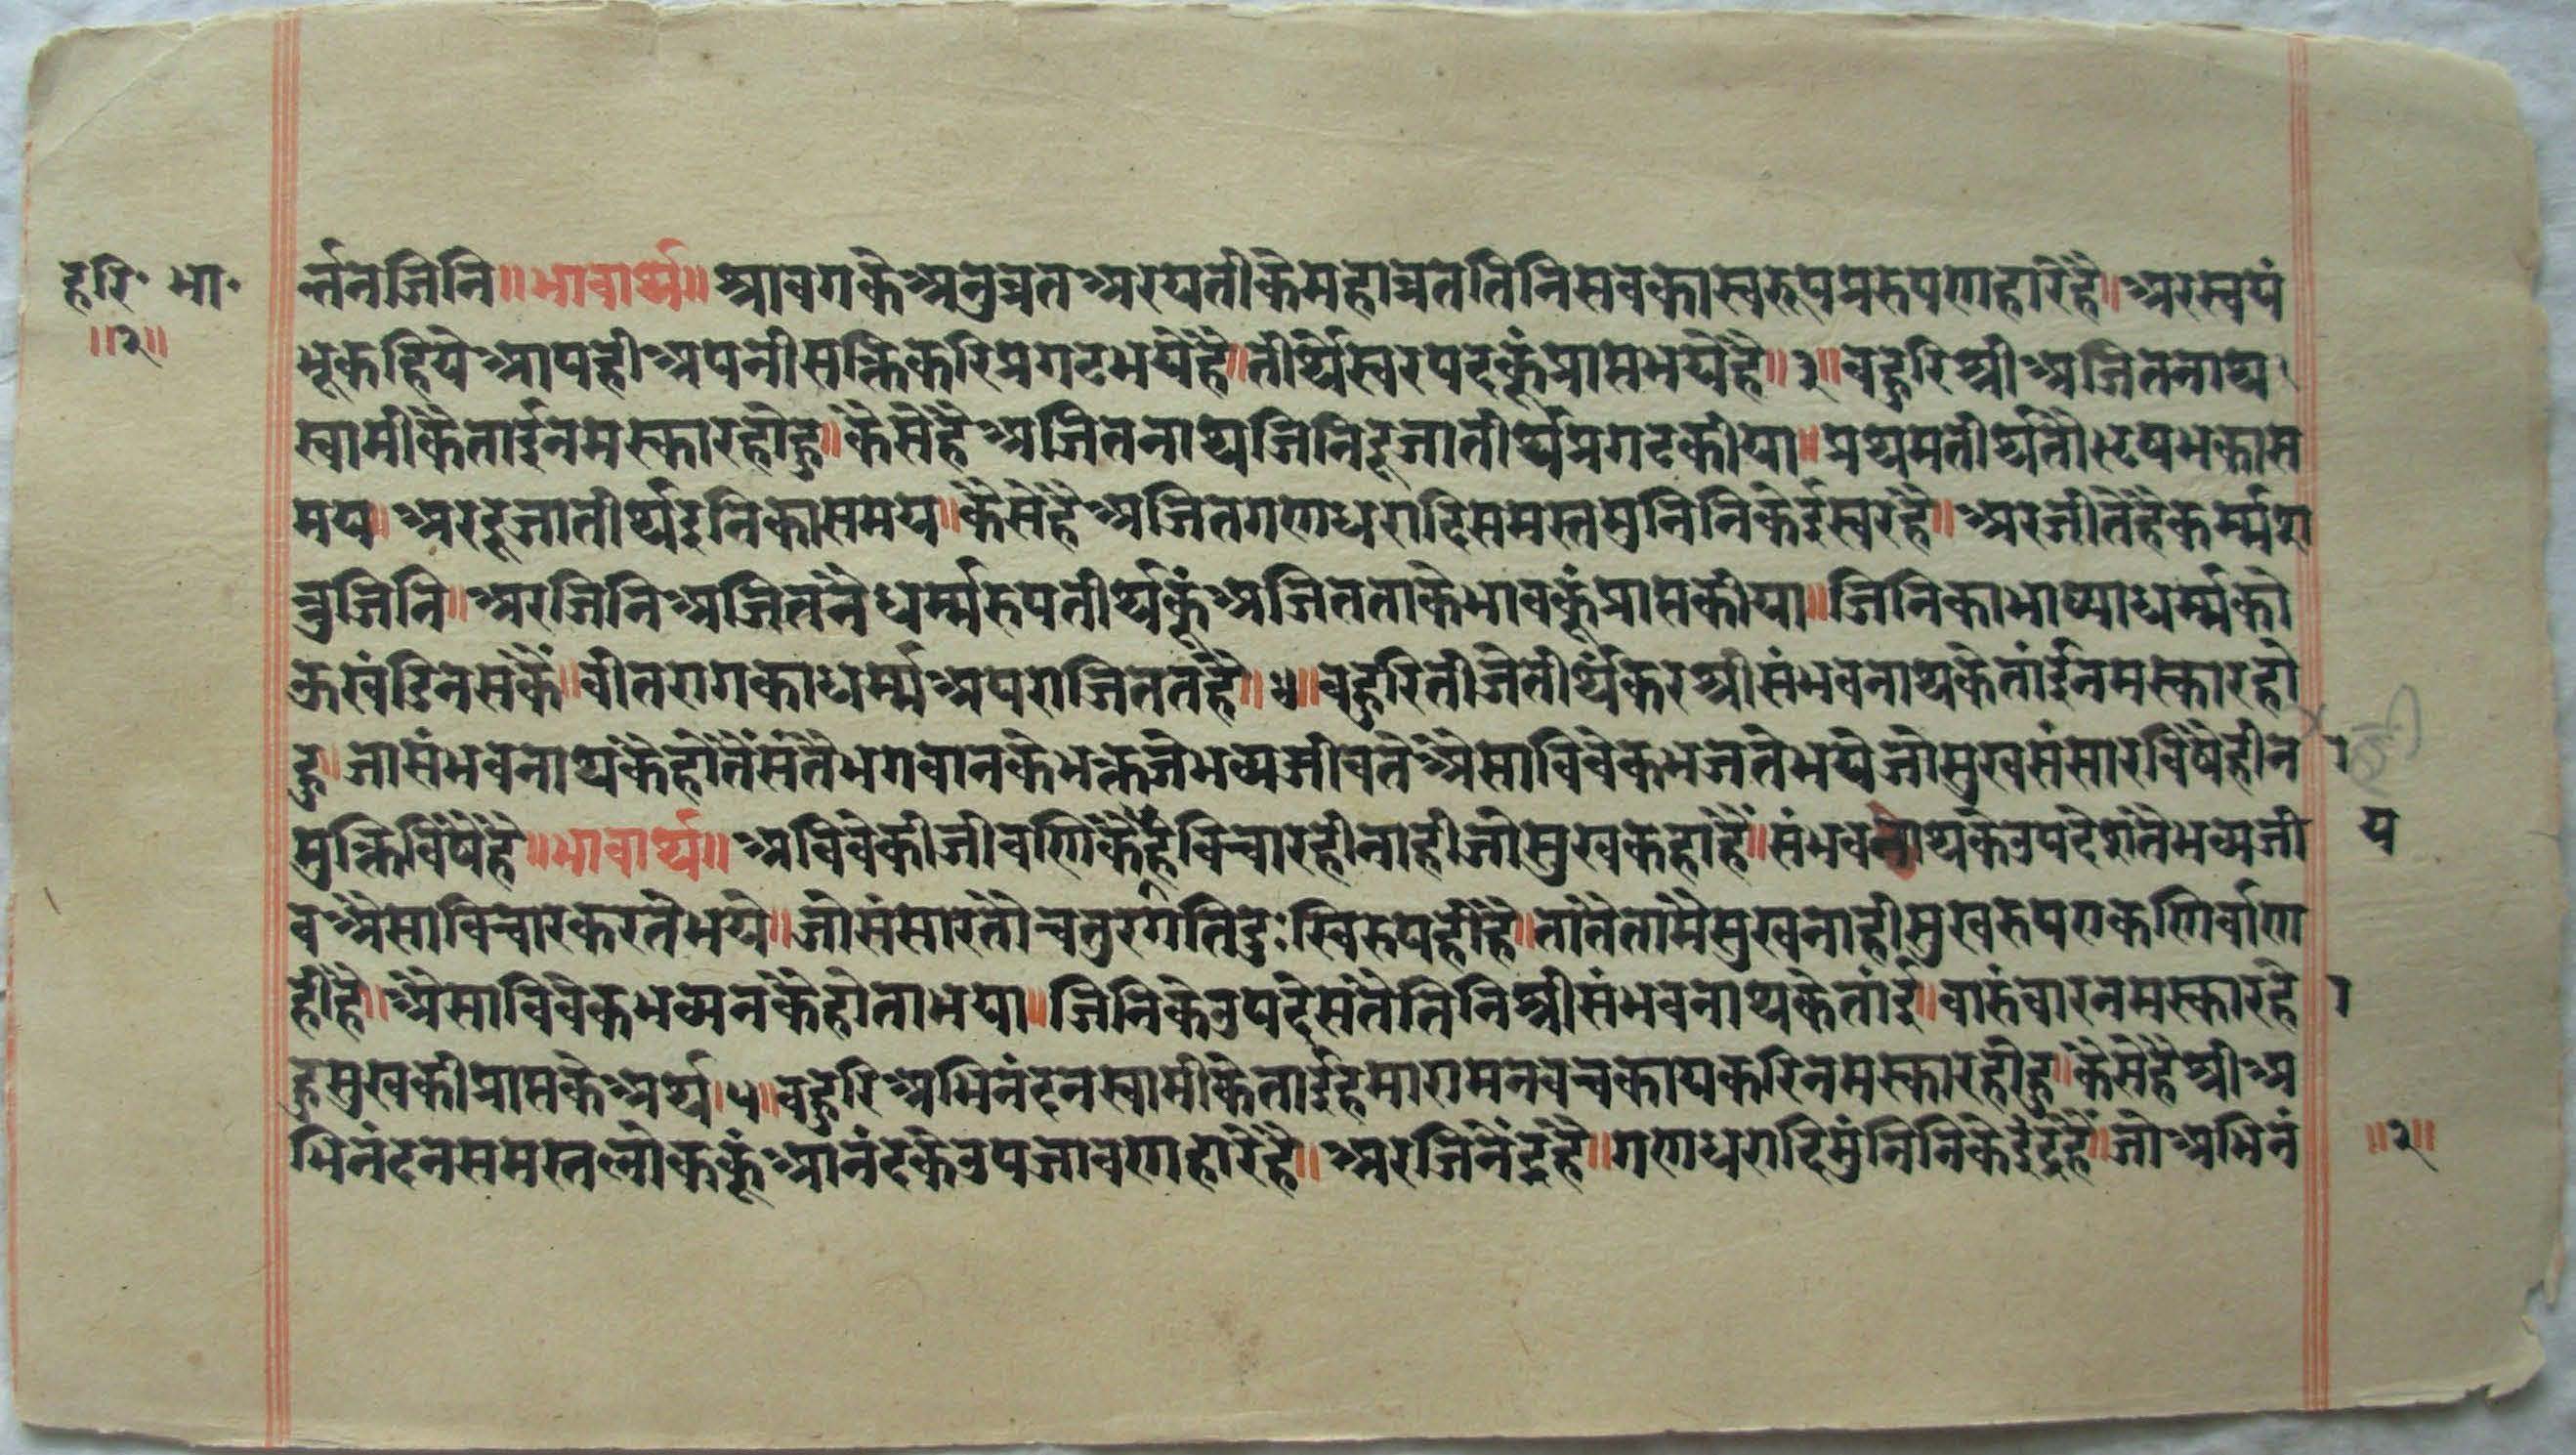 हरि॰ भा॰
॥२॥
र्त्तनजिनि॥भावार्थ॥श्रावगकेअनुव्रतअरयतीकेमहाव्रततिनिसबकास्वरूपप्ररुपणहारेहै॥अरस्वयं
भूकहियेआपहीअपनीसक्तिकरिप्रगटभयेहै॥तीर्थेस्वरपदकूंप्राप्तभयेहै॥३॥बहुरिश्रीअजितनाथ
स्वामीकैतांईनमस्कारहोहु॥कैसेहैअजितनाथजिनिदूजातीर्थप्रगटकीया॥प्रथमतीर्थतौऋषभकास
मय॥अरदूजातीर्थइनिकासमय॥कैसेहैअजितगणधरादिसमस्तमुनिनिकेईस्वरहै॥अरजीतेहैकर्म्मश
त्रुजिनि॥अरजिनिअजितनैधर्म्मरुपतीर्थकूंअजितताकेभावकूंप्राप्तकीया॥जिनिकाभाष्याधर्म्मको
ऊखंडिनसकैं॥वीतरागकाधर्म्मअपराजिततहै॥४॥बहुरितीजेतीर्थंकरश्रीसंभवनाथकेतांईनमस्कारहो
हु॥जासंभवनाथकैहोतैसंतैभगवानकेभक्तजेभव्यजीवतेअैसाविवेकभजतेभयेजोसुखसंसारविषैहीन
मुक्तिविषैहै॥भावार्थ॥अविवेकीजीवणिकैहूविचारहीनाहीजोसुखकहांहै॥संभवनाथकेउपदेशतैभव्यजी य
वअैसाविचारकरतेभये॥जोसंसारतौचतुरगतिदुःखिरुपहीहै॥तांतैतामैसुखनाहीसुखरुपएकणिर्वाण
हीहै॥अैसाविवेकभव्यनकैहोताभया॥जिनिकेउपदेसतैतिनिश्रीसंभवनाथकेतांई॥वारुंवारनमस्कारहे ा
हुसुखकीप्राप्तकेअर्थ॥५॥बहुरिअभिनंदनस्वामीकेतांईहमारामनवचकायकरिनमस्कारहोहु॥कैसेहैश्रीअ
भिनंदनसमस्तलोककूंआनंदकेउपजावणहारेहै॥अरजिनेंद्रहै॥गणधरादिमुंनिनिकेइंद्रहै॥जोअभिनं
॥२॥